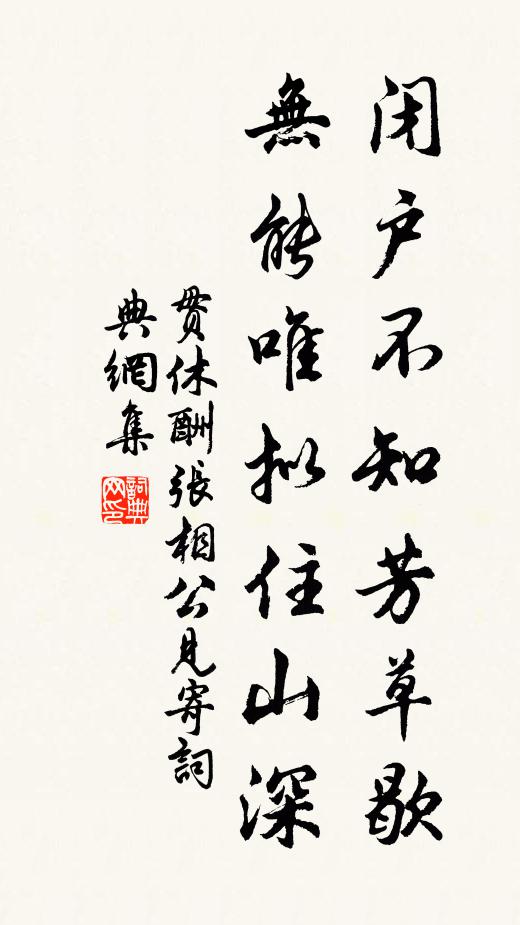 闭户不知芳草歇
無能唯拟住山深
贯休酬張相公見寄詞
典網集
詞典网印